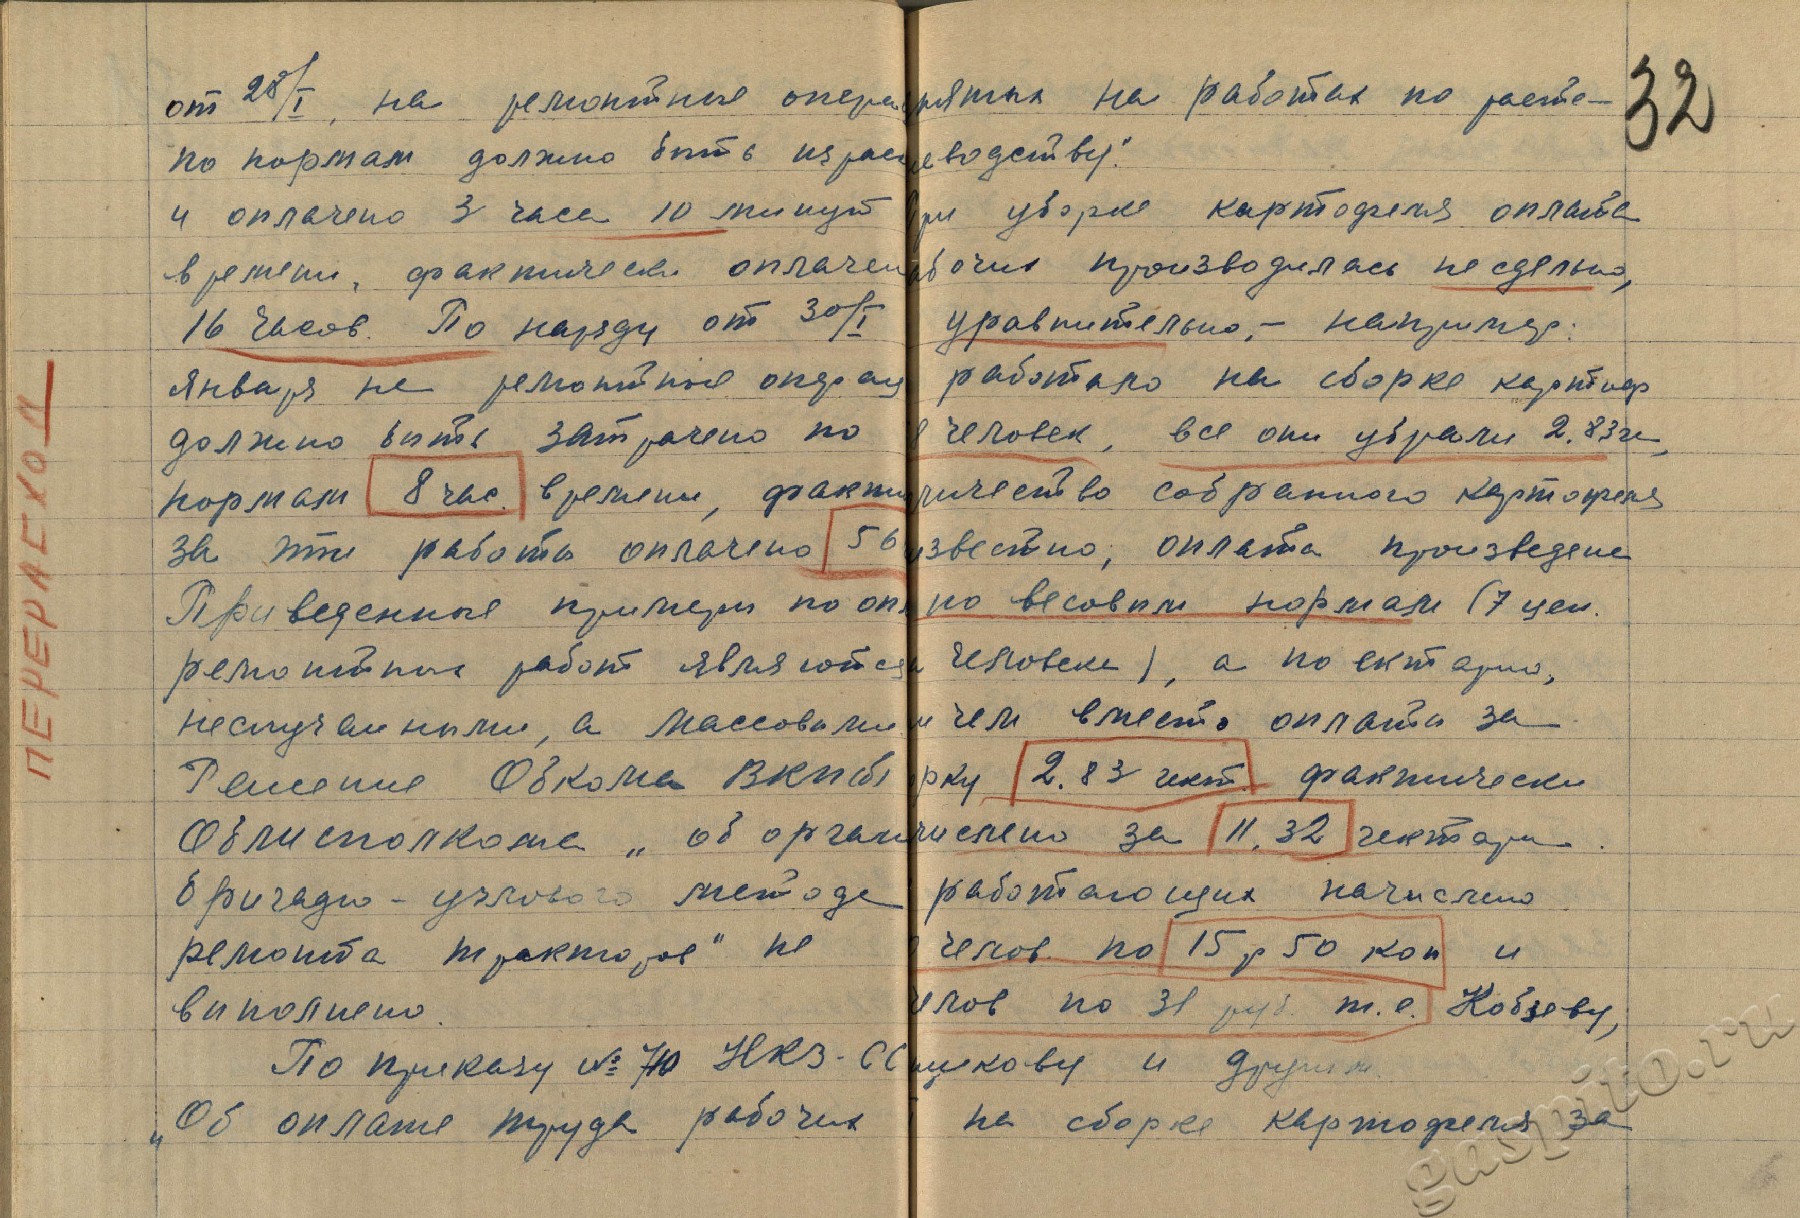 ПЕРЕРАСХОД
от 28/I, на ремонтные опера
по нормам должно быть израс
и оплачено 3 часа 10 минут
времени, фактически оплачен
16 часов. По наряду от 30/I
января на ремонтные операц
должно быть затрачено по
нормам 8 час. времени, факти
за эти работы оплачено 56
Приведенные примеры по опл
ремонтных работ являются
неслучайными, а массовыми
Решение Обкома ВКП(б)
Облисполкома „об орган
бригадно-узлового метода
ремонта тракторов" не
выполнено.
По приказу № 710 НКЗ-СС
„Об оплате труда рабочих
32
нятых на работах по расте-
еводству".
ри уборке картофеля оплата
абочих производилась не сдельно,
уравнительно,- например:
работало на сборке картоф
8 человек, все они убрали 2.83 га,
личество собранного картофеля
известно, оплата произведена
по весовым нормам (7 цен.
человека), а по ектарно,
чем вместо оплаты за
рку 2.83 гект. фактически
числено за 11,32 гектара.
работающих начислено
челов. по 15 р 50 коп и
челов по 31 руб. т.е. Кобзеву,
щикову и другим.
на сборке картофеля за
gaspito.ru